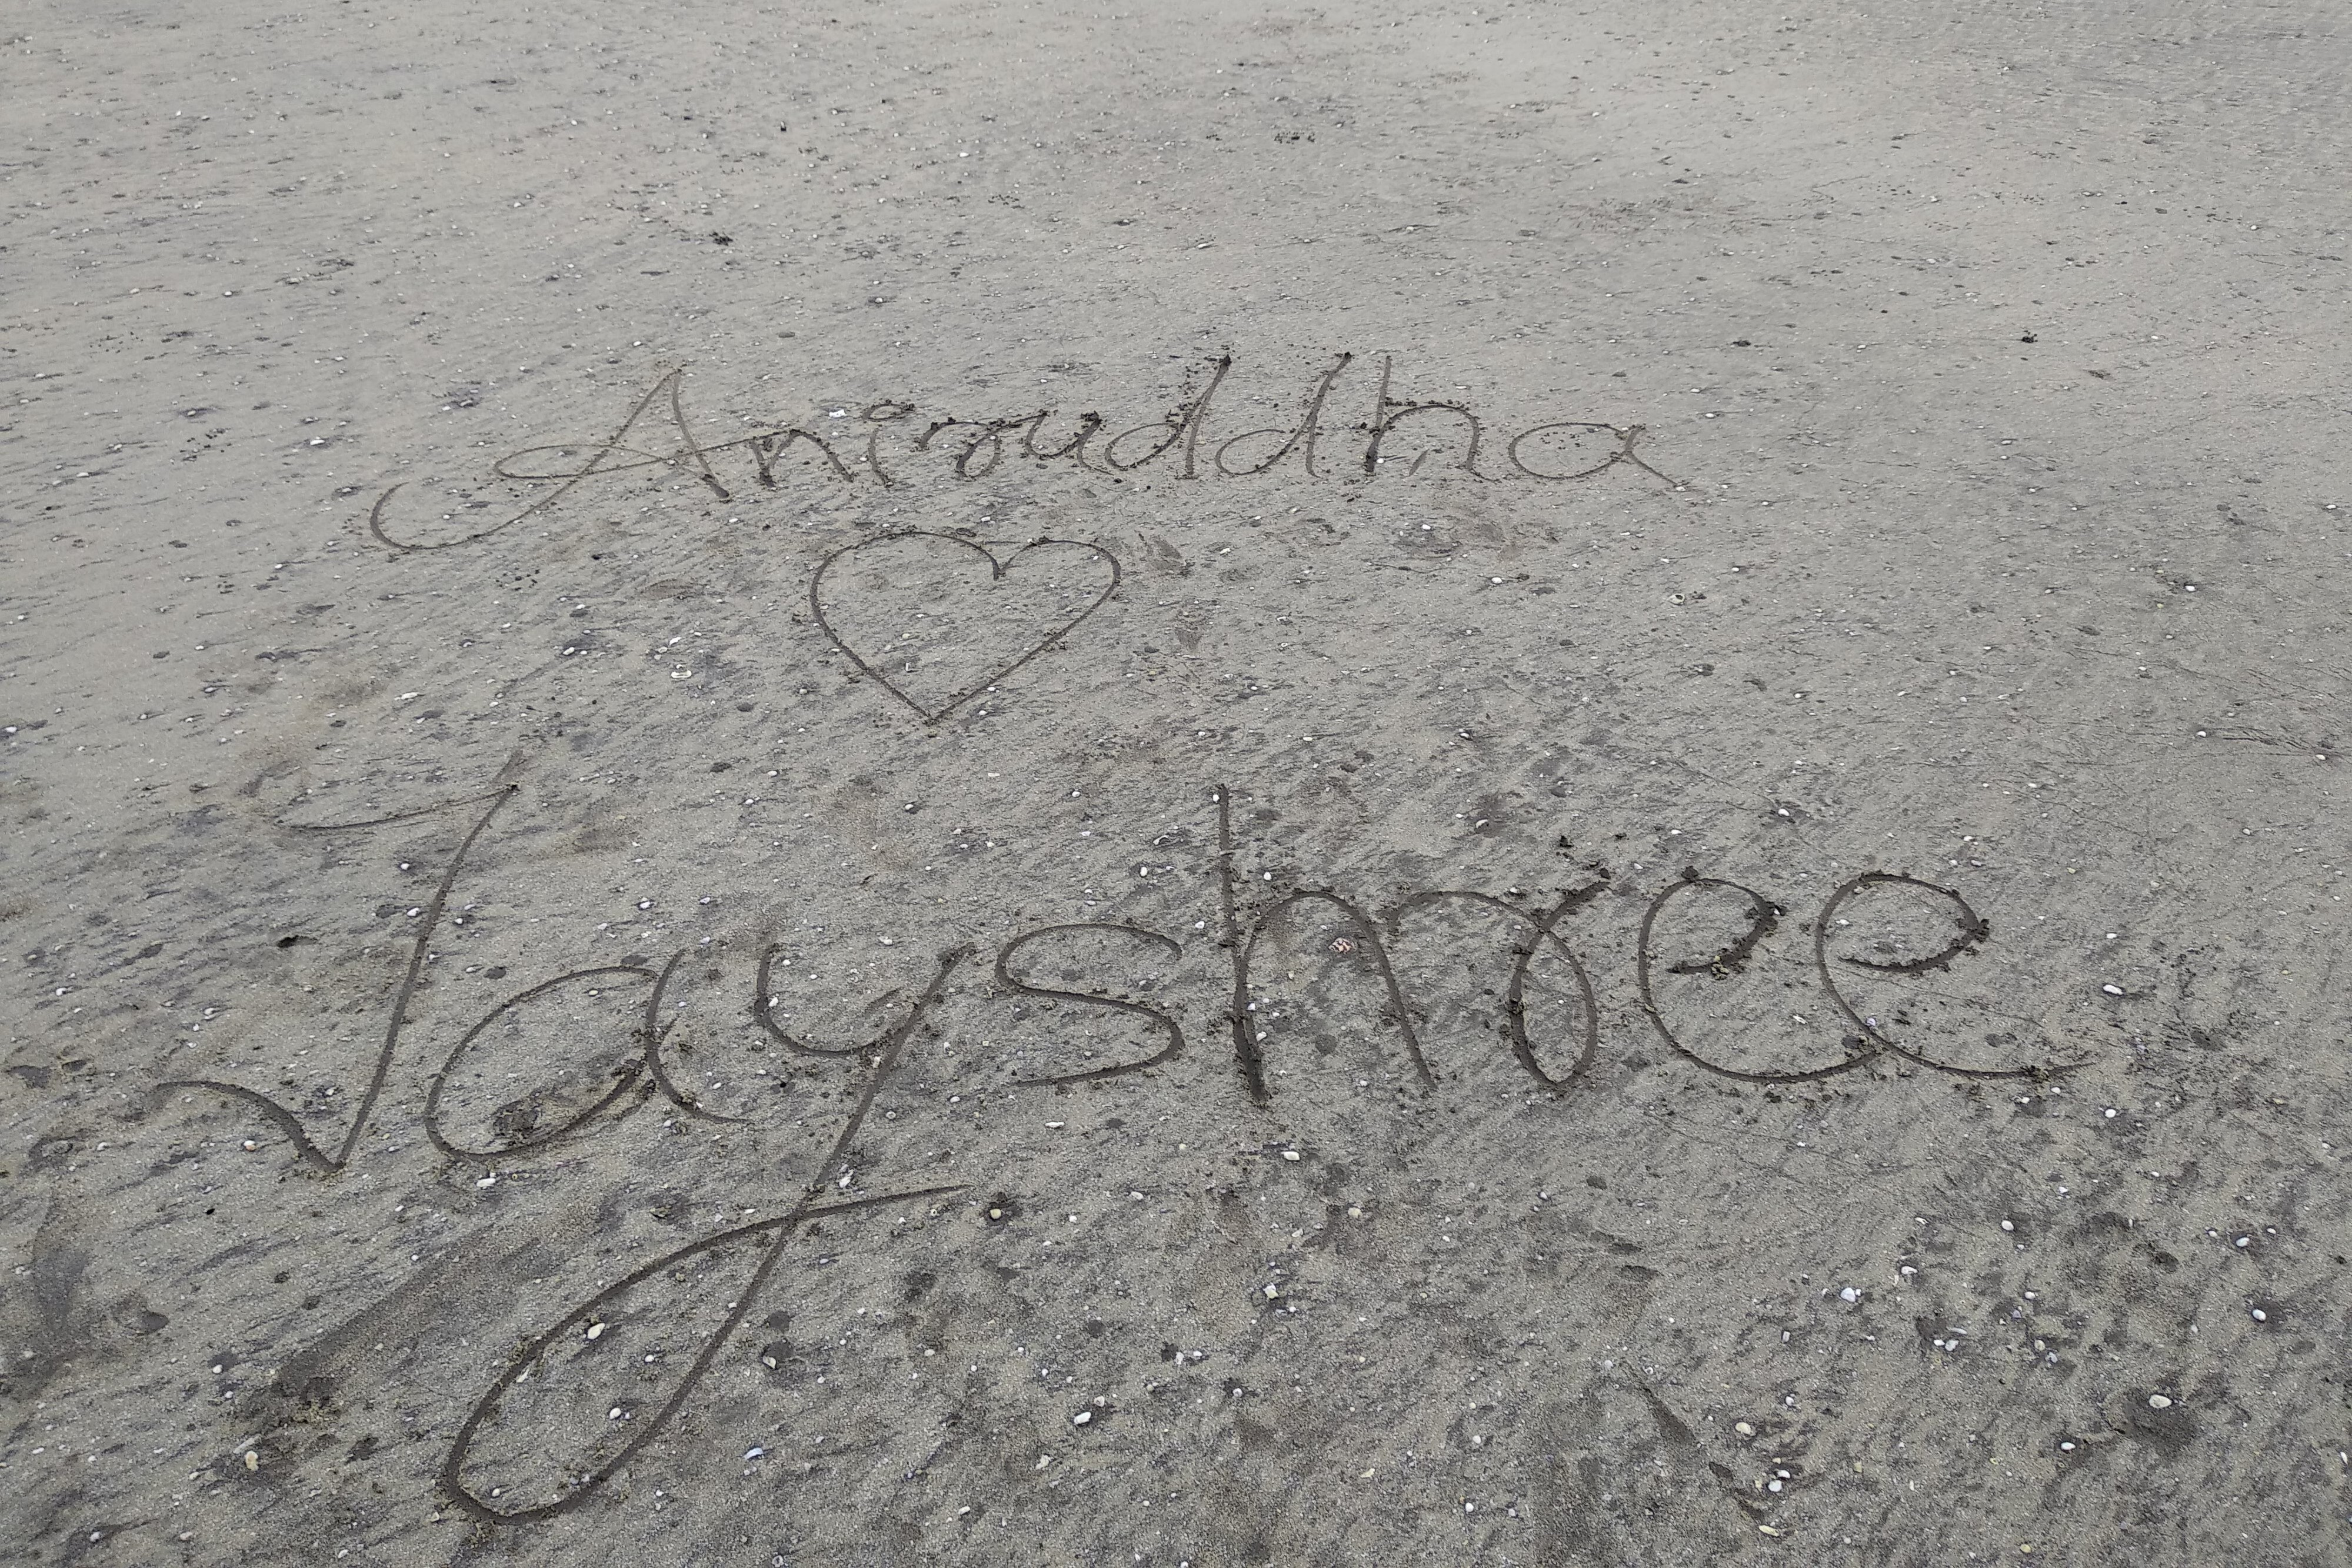 Aniruddha
♡
Jayshree